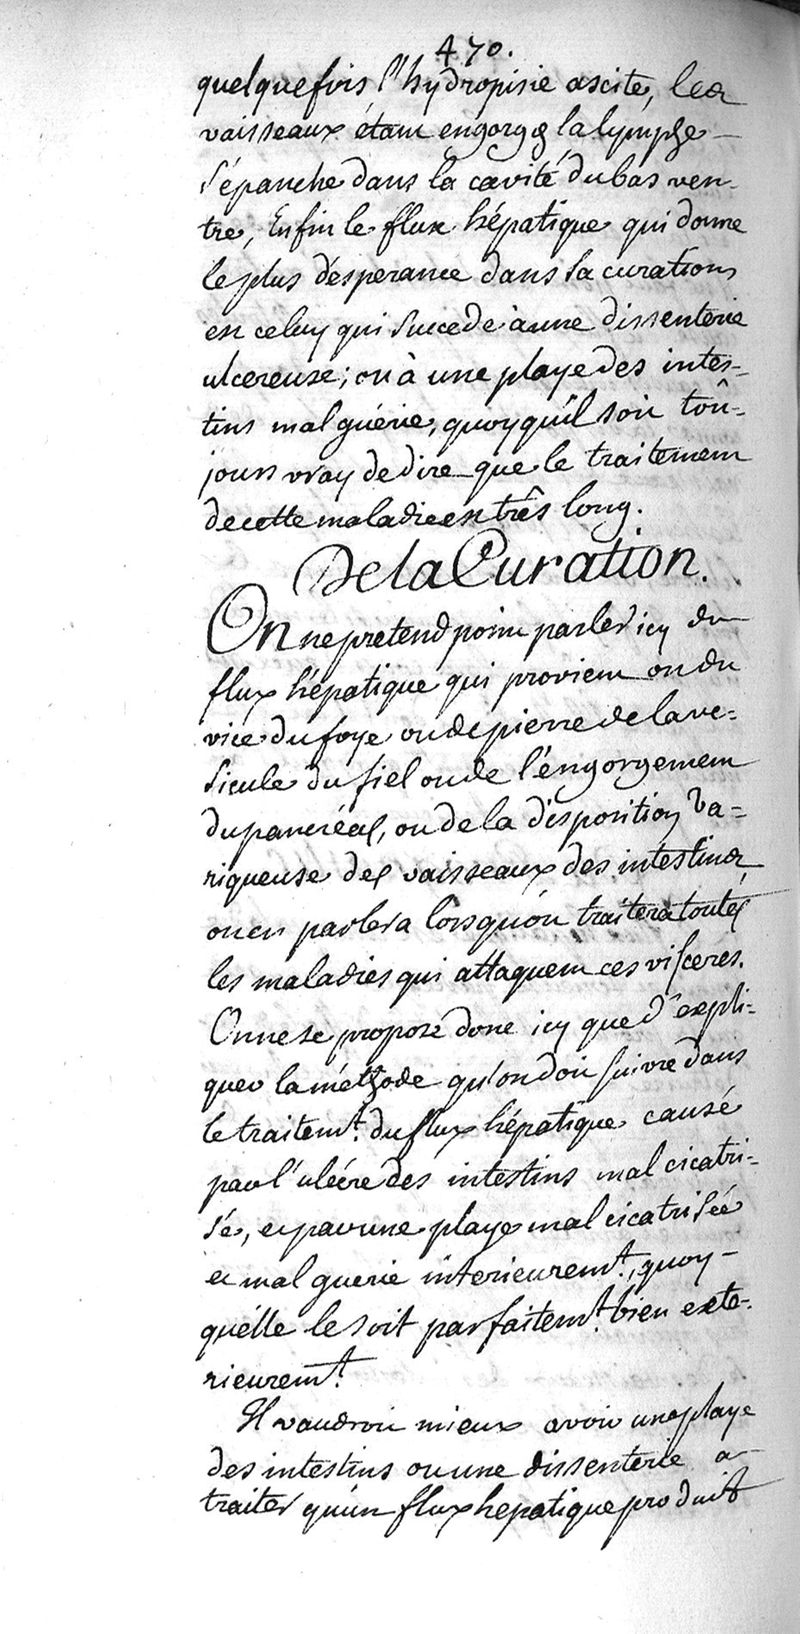 470.
quelquefois l'hydropisie ascite, les
vaisseaux étant engorgés la lymphe
s'épanche dans la cavité du bas ven-
tre, Enfin le flux hépatique qui donne
le plus d'esperance dans sa curation
est celuy qui succede à une dissenterie
ulcereuse; ou à une playe des intes-
tins mal guérie, quoyqu'il soit toû-
jours vray de dire que le traitement
de cette maladie est très long.
De la Curation.
On ne pretend point parler icy du
flux hépatique qui provient ou du
vice du foye ou de pierre de la ve-
sicule du fiel ou de l'éngorgement
du pancréas, ou de la disposition va-
riqueuse des vaisseaux des intestins,
on en parlera lorsqu'on traitera toutes
les maladies qui attaquent ces visceres.
On ne se propose donc icy que d'expli-
quer la méthode qu'on doit suivre dans
le traitemt. du flux hépatique causé
par l'ulcére des intestins mal cicatri-
sé, et par une playe mal cicatrisée
et mal guerie interieuremt., quoy-
qu'élle le soit parfaitemt. bien exte-
rieuremt.
Il vaudroit mieux avoir une playe
des intestins ou une dissenterie a
traiter qu'un flux hepatique produit